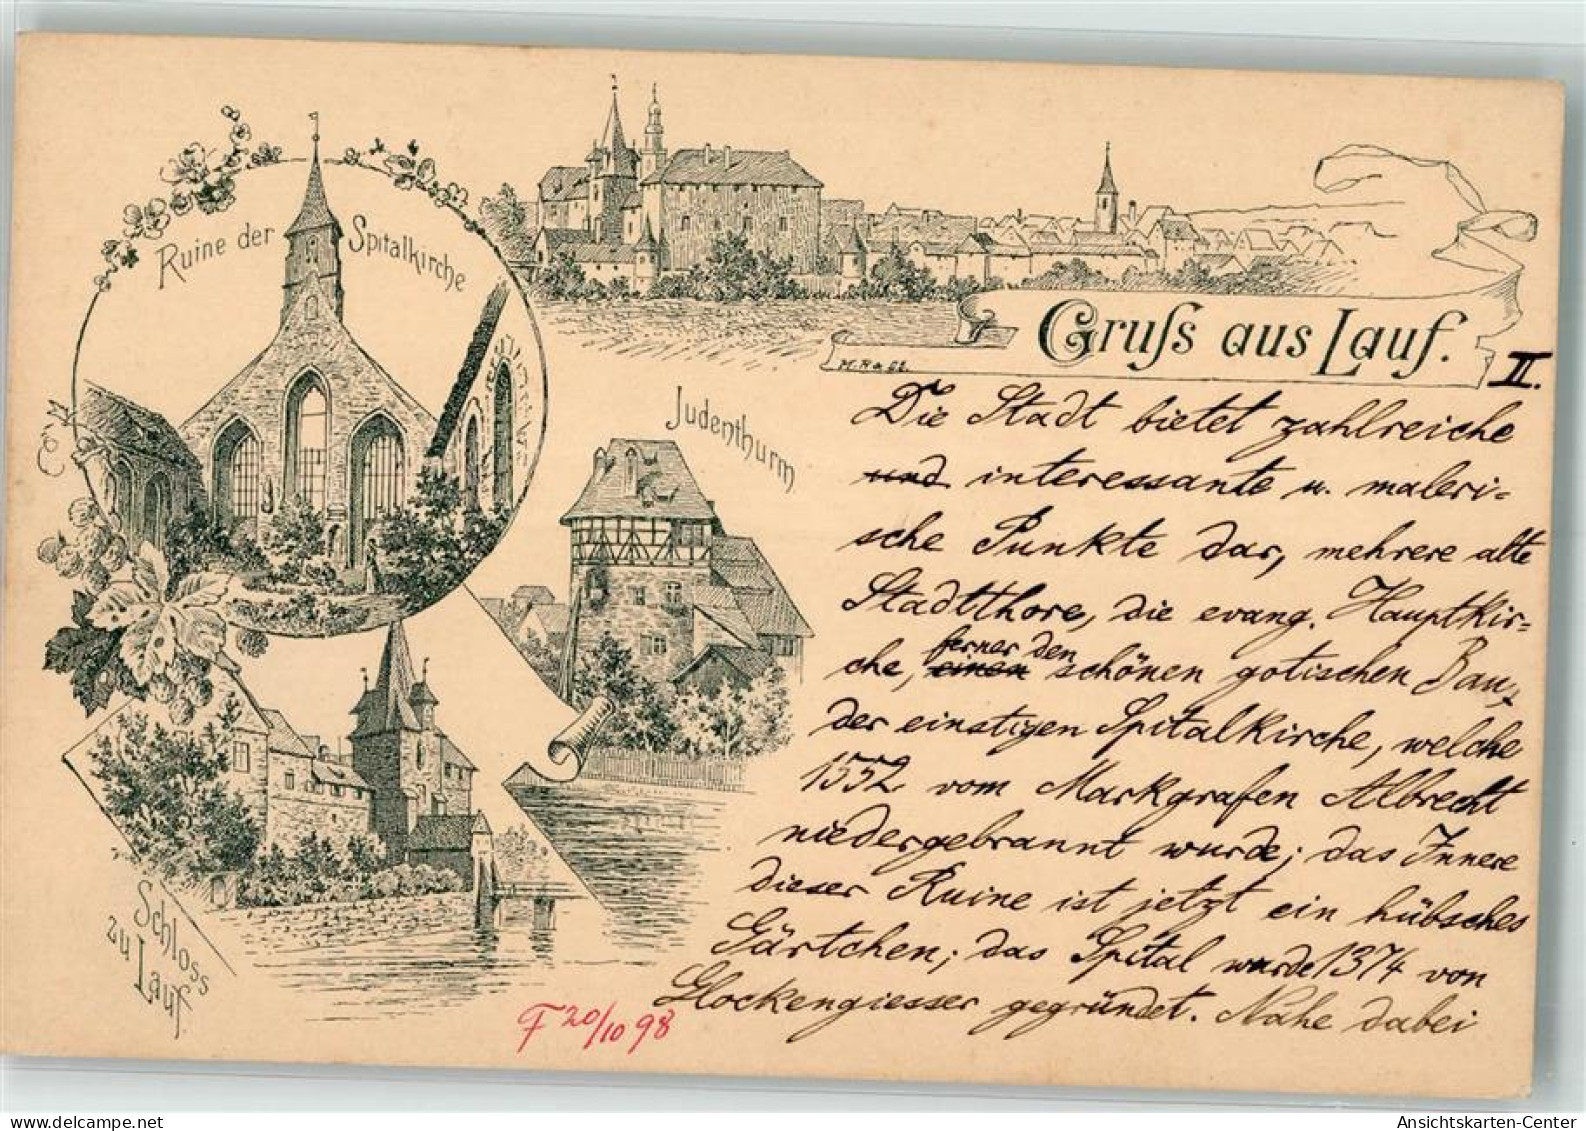 Ruine der Spitalkirche
Gruſs aus Lauf.
M. R & Co.
II.
Judenthurm
Schloss
zu Lauf.
Die Stadt bietet zahlreiche
und interessante u. maleri=
sche Punkte dar, mehrere alte
Stadtthore, die evang. Hauptkir=
ferner den
che, einen schönen gotischen Bau,
der einstigen Spitalkirche, welche
1552 vom Markgrafen Albrecht
niedergebrannt wurde; das Innere
dieser Ruine ist jetzt ein hübsches
Gärtchen; das Spital wurde 1374 von
Glockengiesser gegründet. Nahe dabei
F 20/10 98
www.oldthing.de
Ansichtskarten-Center